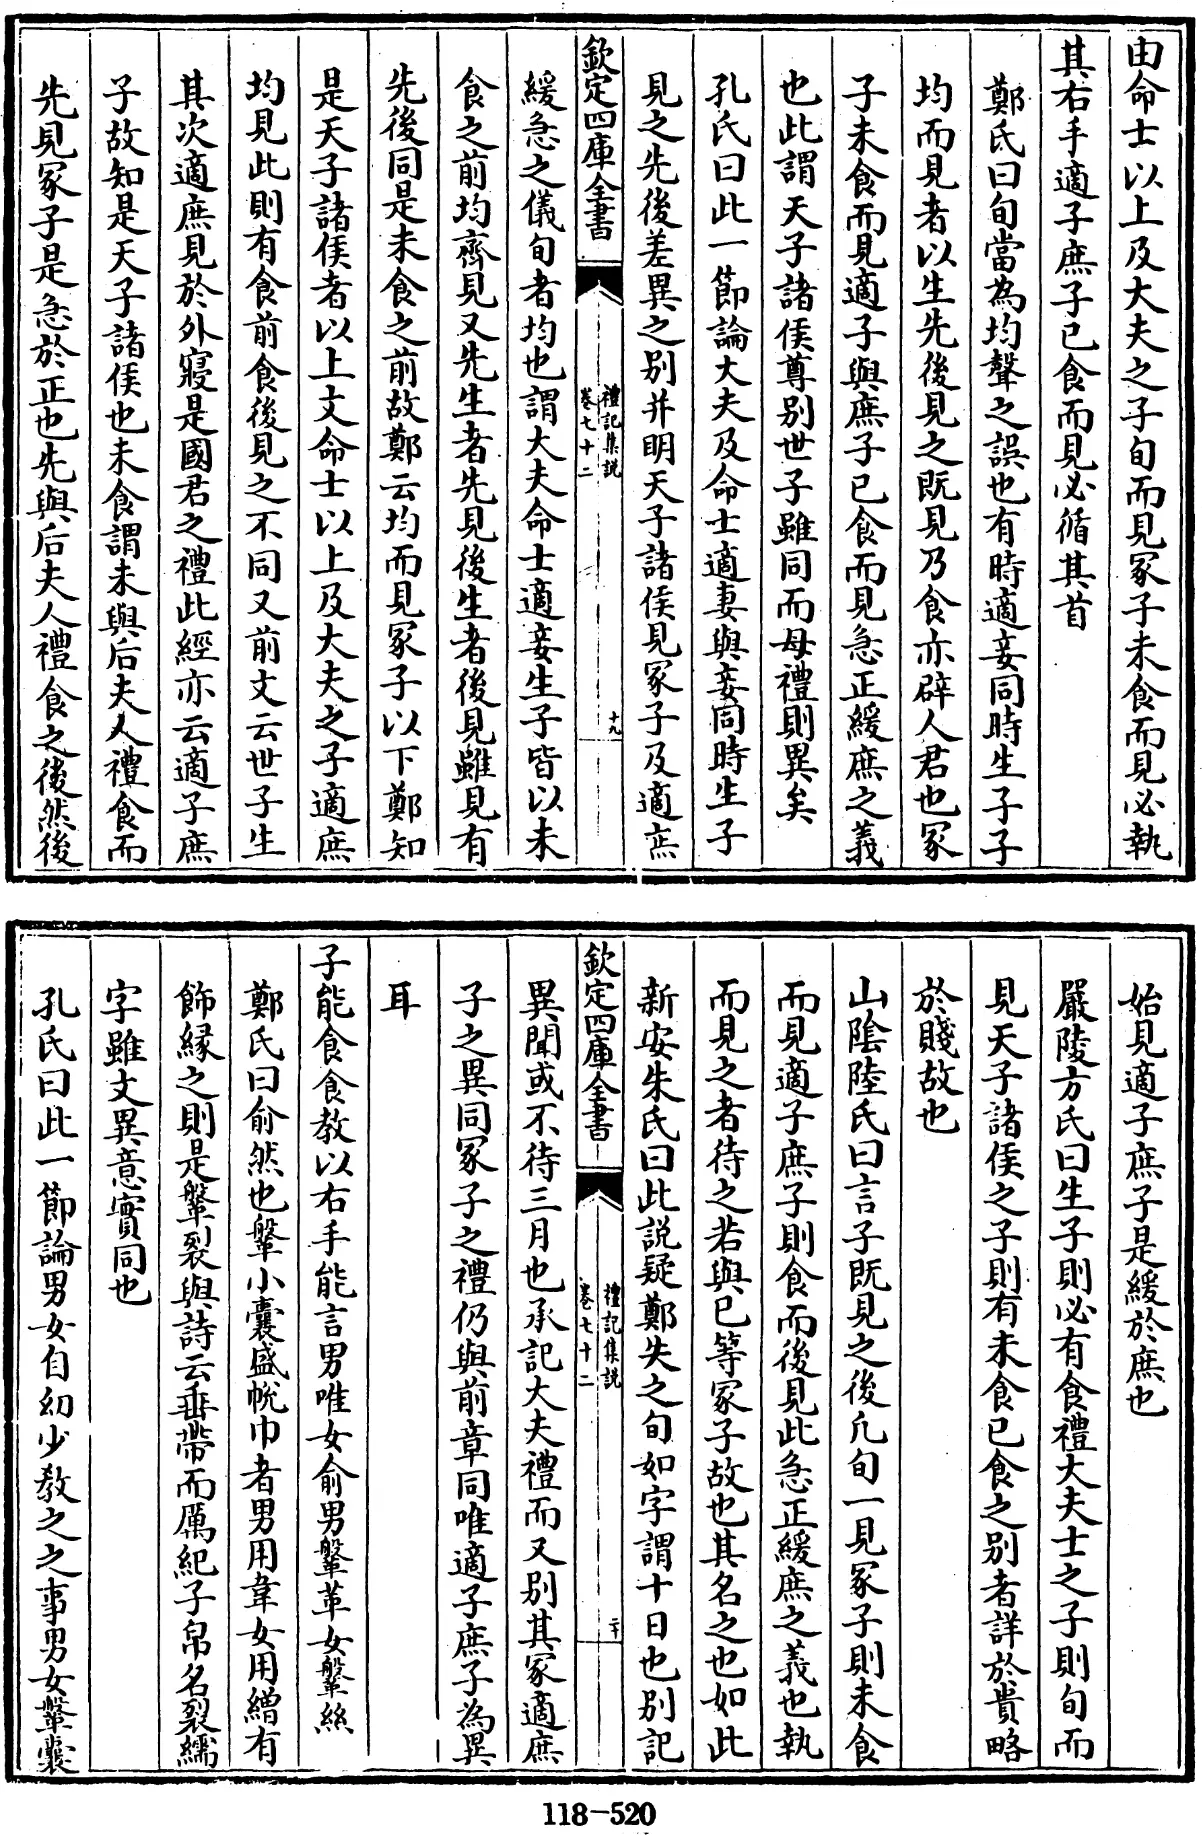 由命士以上及大夫之子旬而見冢子未食而見必執
其右手適子庶子已食而見必循其首
鄭氏曰旬當為均聲之誤也有時適妾同時生子子
均而見者以生先後見之既見乃食亦辟人君也冢
子未食而見適子與庶子已食而見急正緩庶之義
也此謂天子諸侯尊別世子雖同而母禮則異矣
孔氏曰此一節論大夫及命士適妻與妾同時生子
見之先後差異之別并明天子諸侯見冢子及適庶
欽定四庫全書
禮記集說
卷七十二
十九
緩急之儀旬者均也謂大夫命士適妾生子皆以未
食之前均齊見又先生者先見後生者後見雖見有
先後同是未食之前故鄭云均而見冢子以下鄭知
是天子諸侯者以上文命士以上及大夫之子適庶
均見此則有食前食後見之不同又前文云世子生
其次適庶見於外寢是國君之禮此經亦云適子庶
子故知是天子諸侯也未食謂未與后夫人禮食而
先見冢子是急於正也先與后夫人禮食之後然後
始見適子庶子是緩於庶也
嚴陵方氏曰生子則必有食禮大夫士之子則旬而
見天子諸侯之子則有未食已食之別者詳於貴略
於賤故也
山陰陸氏曰言子既見之後凡旬一見冢子則未食
而見適子庶子則食而後見此急正緩庶之義也執
而見之者待之若與已等冢子故也其名之也如此
新安朱氏曰此說疑鄭失之旬如字謂十日也別記
欽定四庫全書
禮記集說
卷七十二
二十
異聞或不待三月也承記大夫禮而又別其冢適庶
子之異同冢子之禮仍與前章同唯適子庶子為異
耳
子能食食教以右手能言男唯女俞男鞶革女鞶絲
鄭氏曰俞然也鞶小囊盛帨巾者男用韋女用繒有
飾緣之則是鞶裂與詩云垂帶而厲紀子帛名裂繻
字雖文異意實同也
孔氏曰此一節論男女自幼少教之之事男女鞶囊
118-520